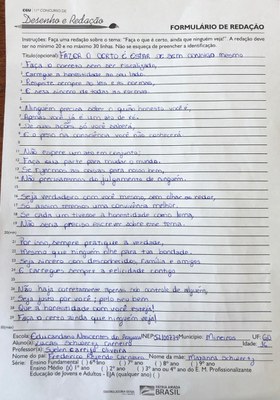 CGU
Desenho e Redação
FORMULÁRIO DE REDAÇÃO
Instruções: Faça uma redação sobre o tema: "Faça o que é certo, ainda que ninguém veja!" A redação deve
ter no mínimo 20 e no máximo 30 linhas. Não se esqueça de preencher a identificação.
Título(opcional): FAZER O CERTO É ESTAR DE BEM consigo mesmo
Faça o correto sem ser fiscalizado,
Carregue a honestidade ao seu lado.
Respeite sempre as leis e normas,
E seja sincero de todas as formas.
Ninguém precisa saber o quão honesto você é,
Apenas você já é um
De suas ações só você saberá,
E o peso da consciência você não carregará.
Não espere um ato em conjunto:
Faça sua parte para mudar o mundo.
Se fizermos as coisas para nosso bem,
Não precisaremos do julgamento de ninguém.
Seja verdadeiro com você mesmo, sem olhar ao redor,
Só assim teremos uma consciência melhor.
Se cada um tivesse a honestidade como lema,
Não seria preciso escrever sobre esse tema.
Por isso, sempre pratique a verdade,
Mesmo que ninguém olhe para tua bondade.
Seja sincero com desconhecidos, família e amigos
E carregues sempre a felicidade contigo.
Não haja corretamente apenas sob controle de alguém,
Seja justo por você; pelo seu bem
Que a honestidade com você esteja!
Faça o certo ainda que ninguém veja!
Escola: Educandário Nascentes do Araguaia INEP: Município: Mineiros UF: GO
Aluno(a): Lucas Schwertz Carneiro Idade:
Professor(a): Oliveira
Nome do pai: Frederico Nome da mãe: Marianna Schwertz
Série: Ensino Fundamental ( ) 6º ano ( ) 7º ano ( ) 8º ano ( ) 9º ano
Ensino Médio ( ) 1º ano ( ) 2º ano ( ) 3º ano ou 4º ano do E. M. Profissionalizante
Educação de Jovens e Adultos - EJA (qualquer ano) ( )
PÁTRIA AMADA
BRASIL